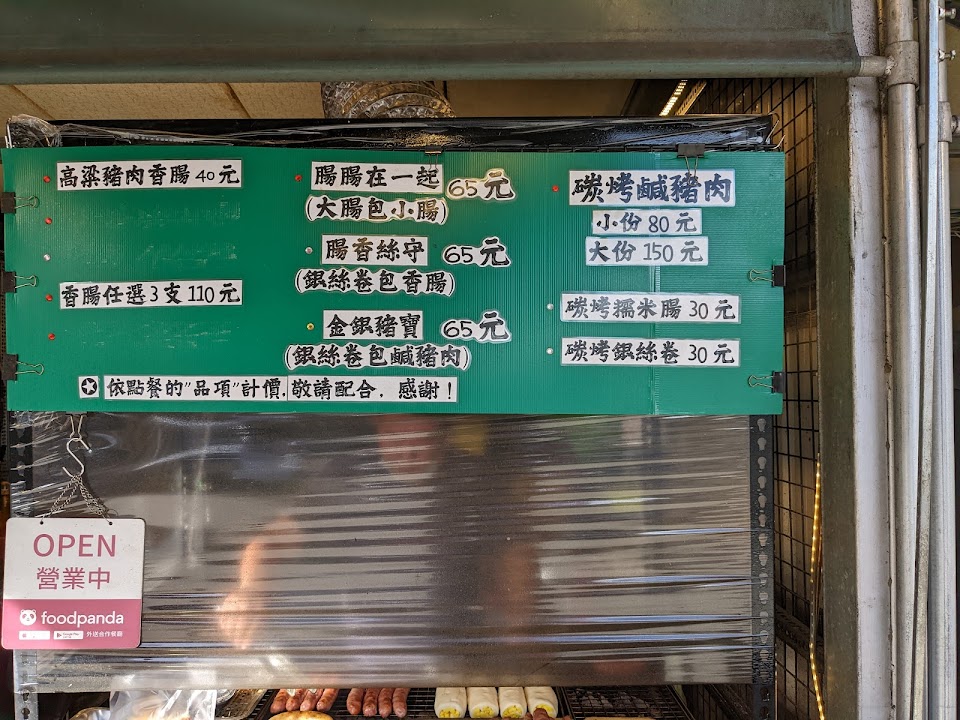 高梁豬肉香腸 40元
香腸任選3支110元
腸腸在一起 65元
(大腸包小腸)
腸香絲守 65元
(銀絲卷包香腸)
金銀豬寶 65元
(銀絲卷包鹹豬肉)
碳烤鹹豬肉
小份 80元
大份 150元
碳烤糯米腸 30元
碳烤銀絲卷 30元
✪ 依點餐的"品項"計價,敬請配合, 感謝!
OPEN
營業中
foodpanda
外送合作餐廳